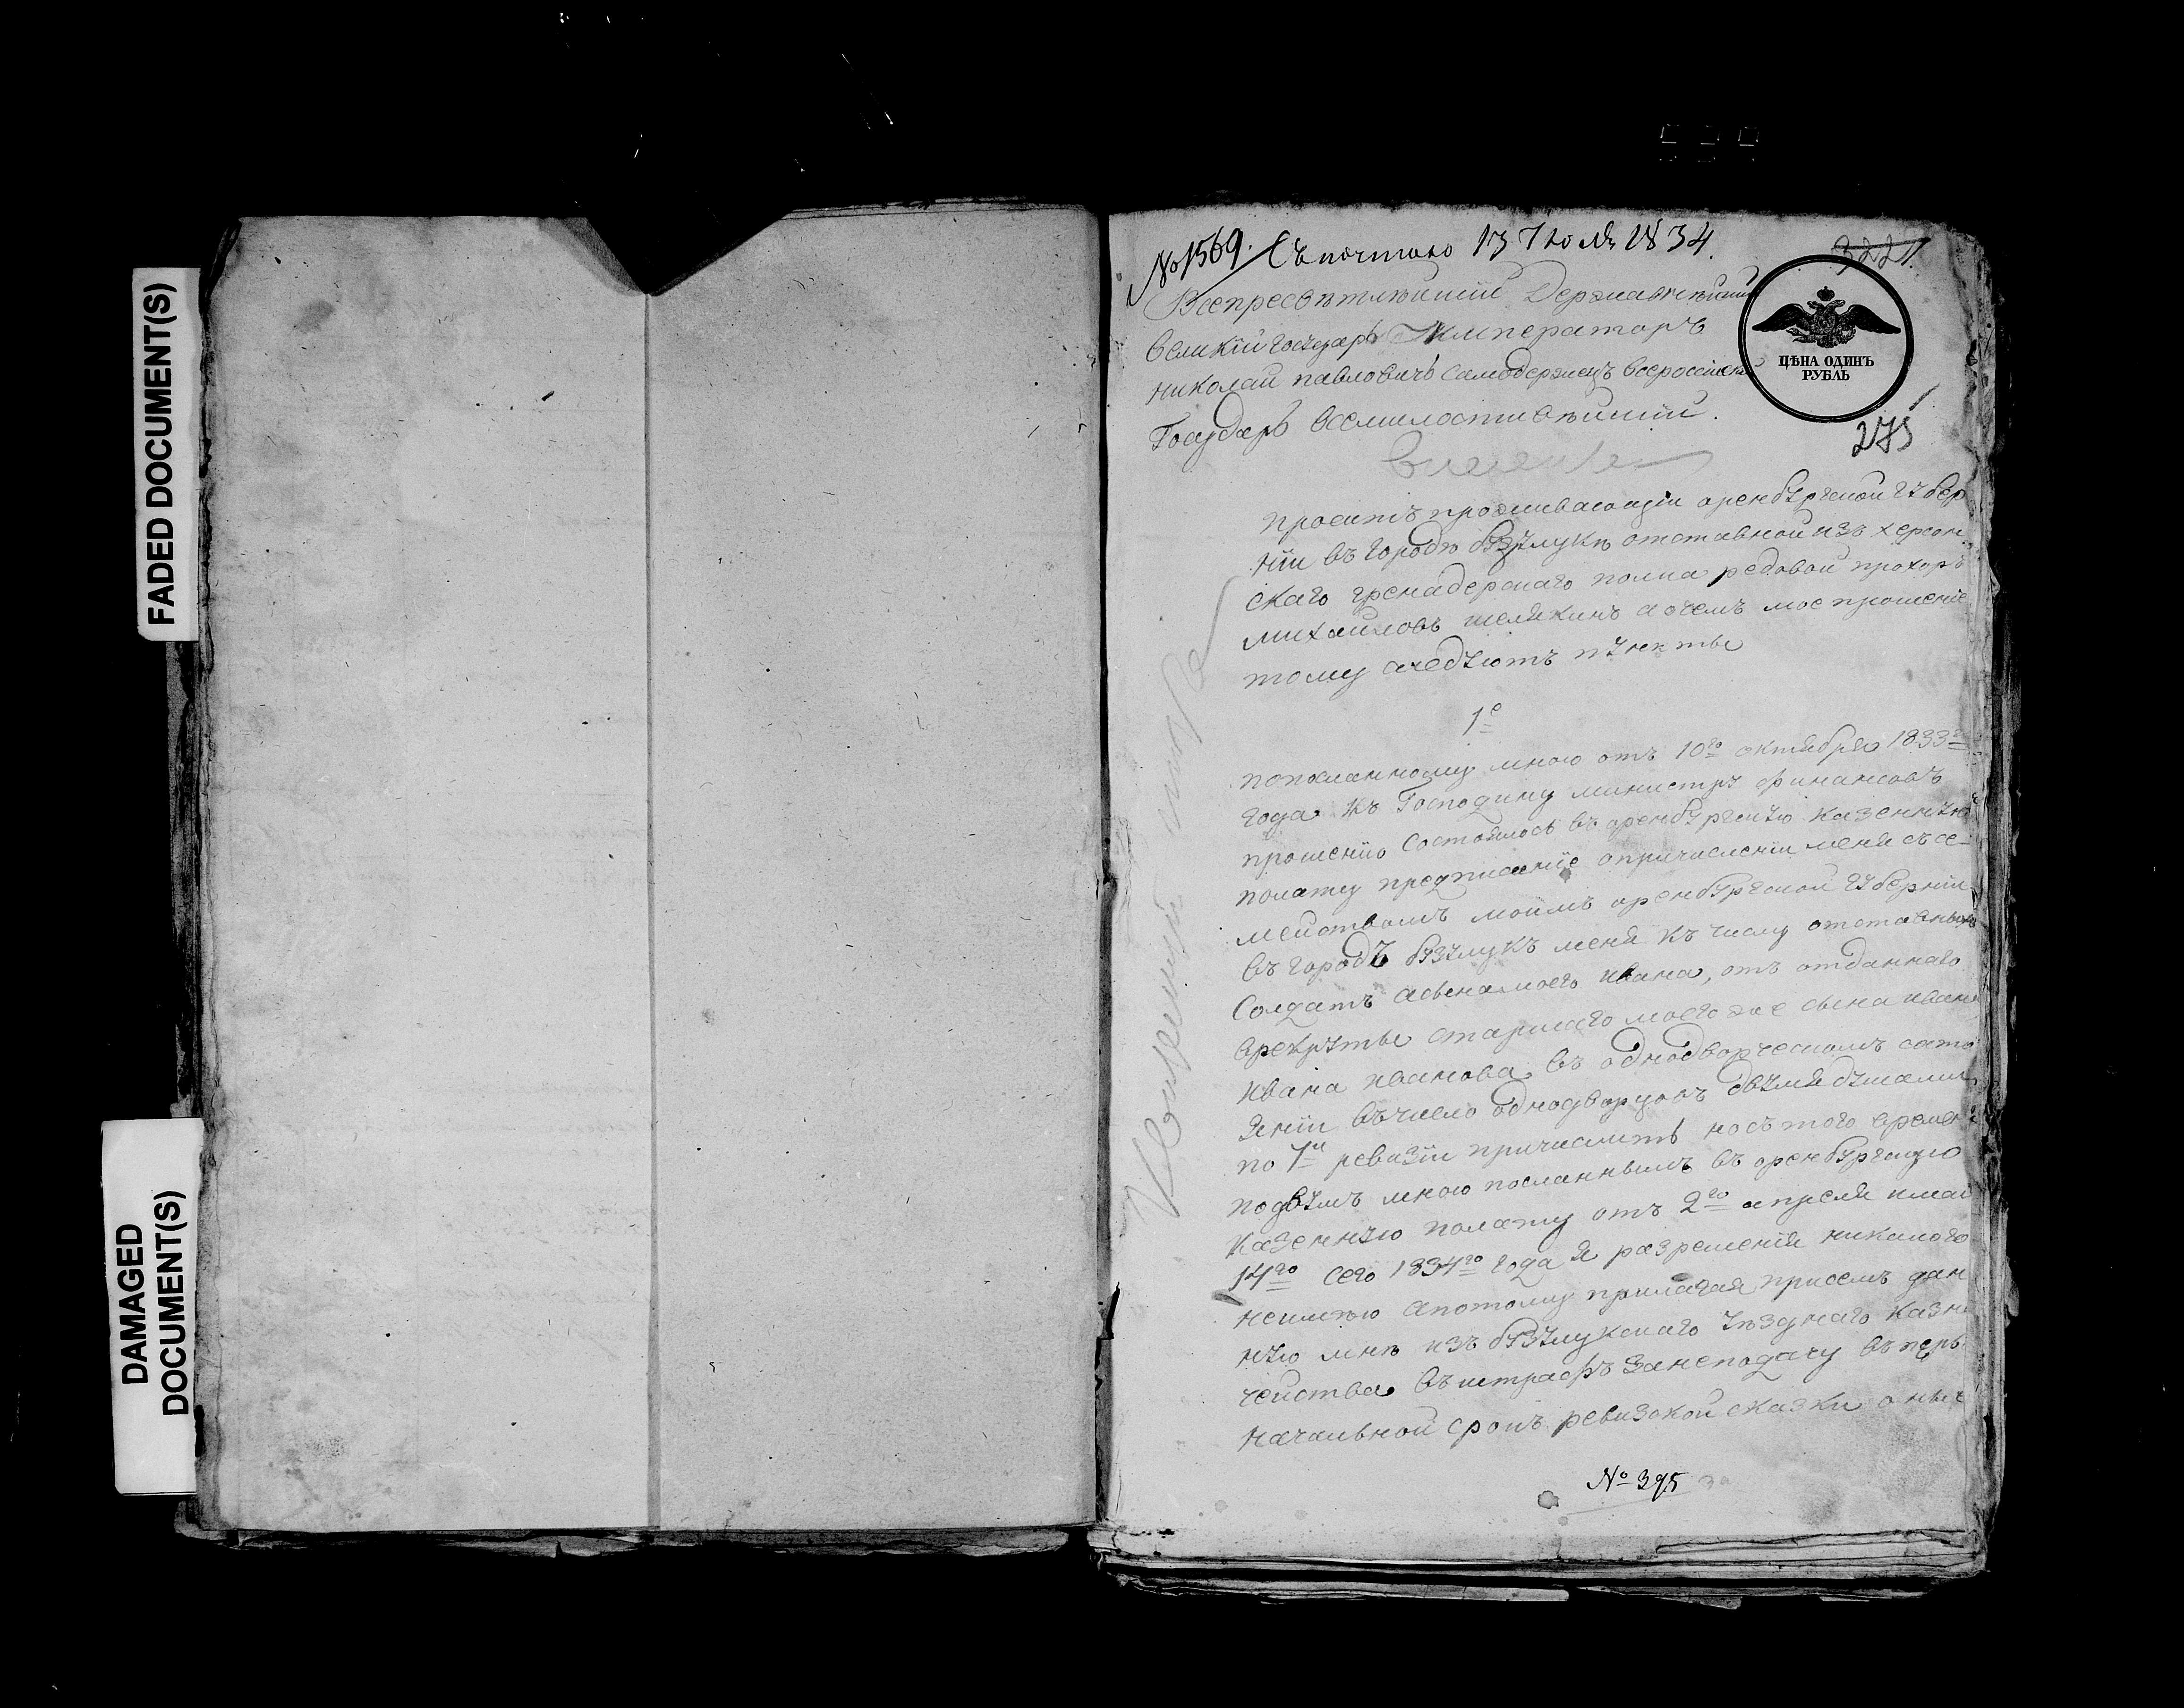 FADED DOCUMENT(S)
DAMAGED
DOCUMENT(S)
№ 1569. Съ почтою 13 Июля 1834.
3221.
Всепресвѣтлѣйшій Державнѣйшій
великій государь Императоръ
николай павловичь самодержецъ всероссійскій
Государь всемилостивѣйшій.
ЦѢНА ОДИНЪ
РУБЛЬ
275
проситъ проживающій оренбургской губер
ніи въ городѣ бузулукѣ отставной изъ херсон
скаго гренадерскаго полка редовой прохоръ
михайловъ шелякинъ а очемъ мое прошеніе
тому следуютъ пункты
1е
попосланному мною отъ 10го октября 1833го
года къ Господину министру финансовъ
прошенію состоялось въ оренбургскую казенную
полату предписаніе опричисленіи меня съ се-
мействомъ моимъ оренбургской губерніи
въ городъ бузулукъ меня къ числу отставныхъ
солдатъ асына моего ивана, отъ отданнаго
врекруты старшаго моего же сына ивана
ивана иванова въ однодворческомъ состо
яніи въ число однодворцовъ двумя душами
по 7й ревизіи причислить но съ того времени
подвумъ мною посланнымъ въ оренбургскую
казенную полату отъ 2го апреля имаи
14го сего 1834го года я разрешенія никакого
неимѣю апотому прилагая присемъ дан
ную мнѣ изъ бузулукскаго уѣзднаго казна
чейства въ штрафъ занеподачу въ перво
начальной срокъ ревизской сказки оныя
№ 395